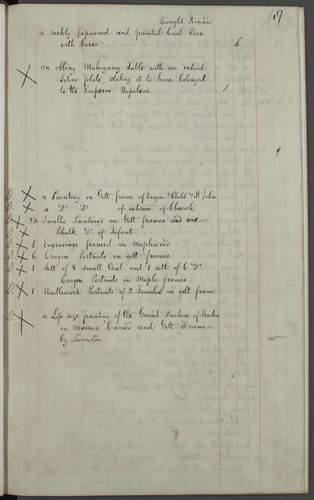 49
Brought Forward
a richly Japanned and painted Coal Box
with Cover 6
an oblong Mahogany Table with an inlaid
Silver plate stating it to have belonged
to the Emperor Napoleon 1
a Painting in Gilt frame of Virgin & Child & St John
a Do Do of interior of Church
23 Smaller Paintings in Gilt frames and one
Chalk Do of Infant
6 Engravings framed in Maplewood
6 Crayon Portraits in gilt frames
1 Sett of 8 small Oval and 1 sett of 6 Do
Crayon Portraits in Maple frames
1 Needlework Portraits of 2 Females in gilt frame
a Life size painting of the Grand Duchess of Baden
in Massive Carved and Gilt Frame
by